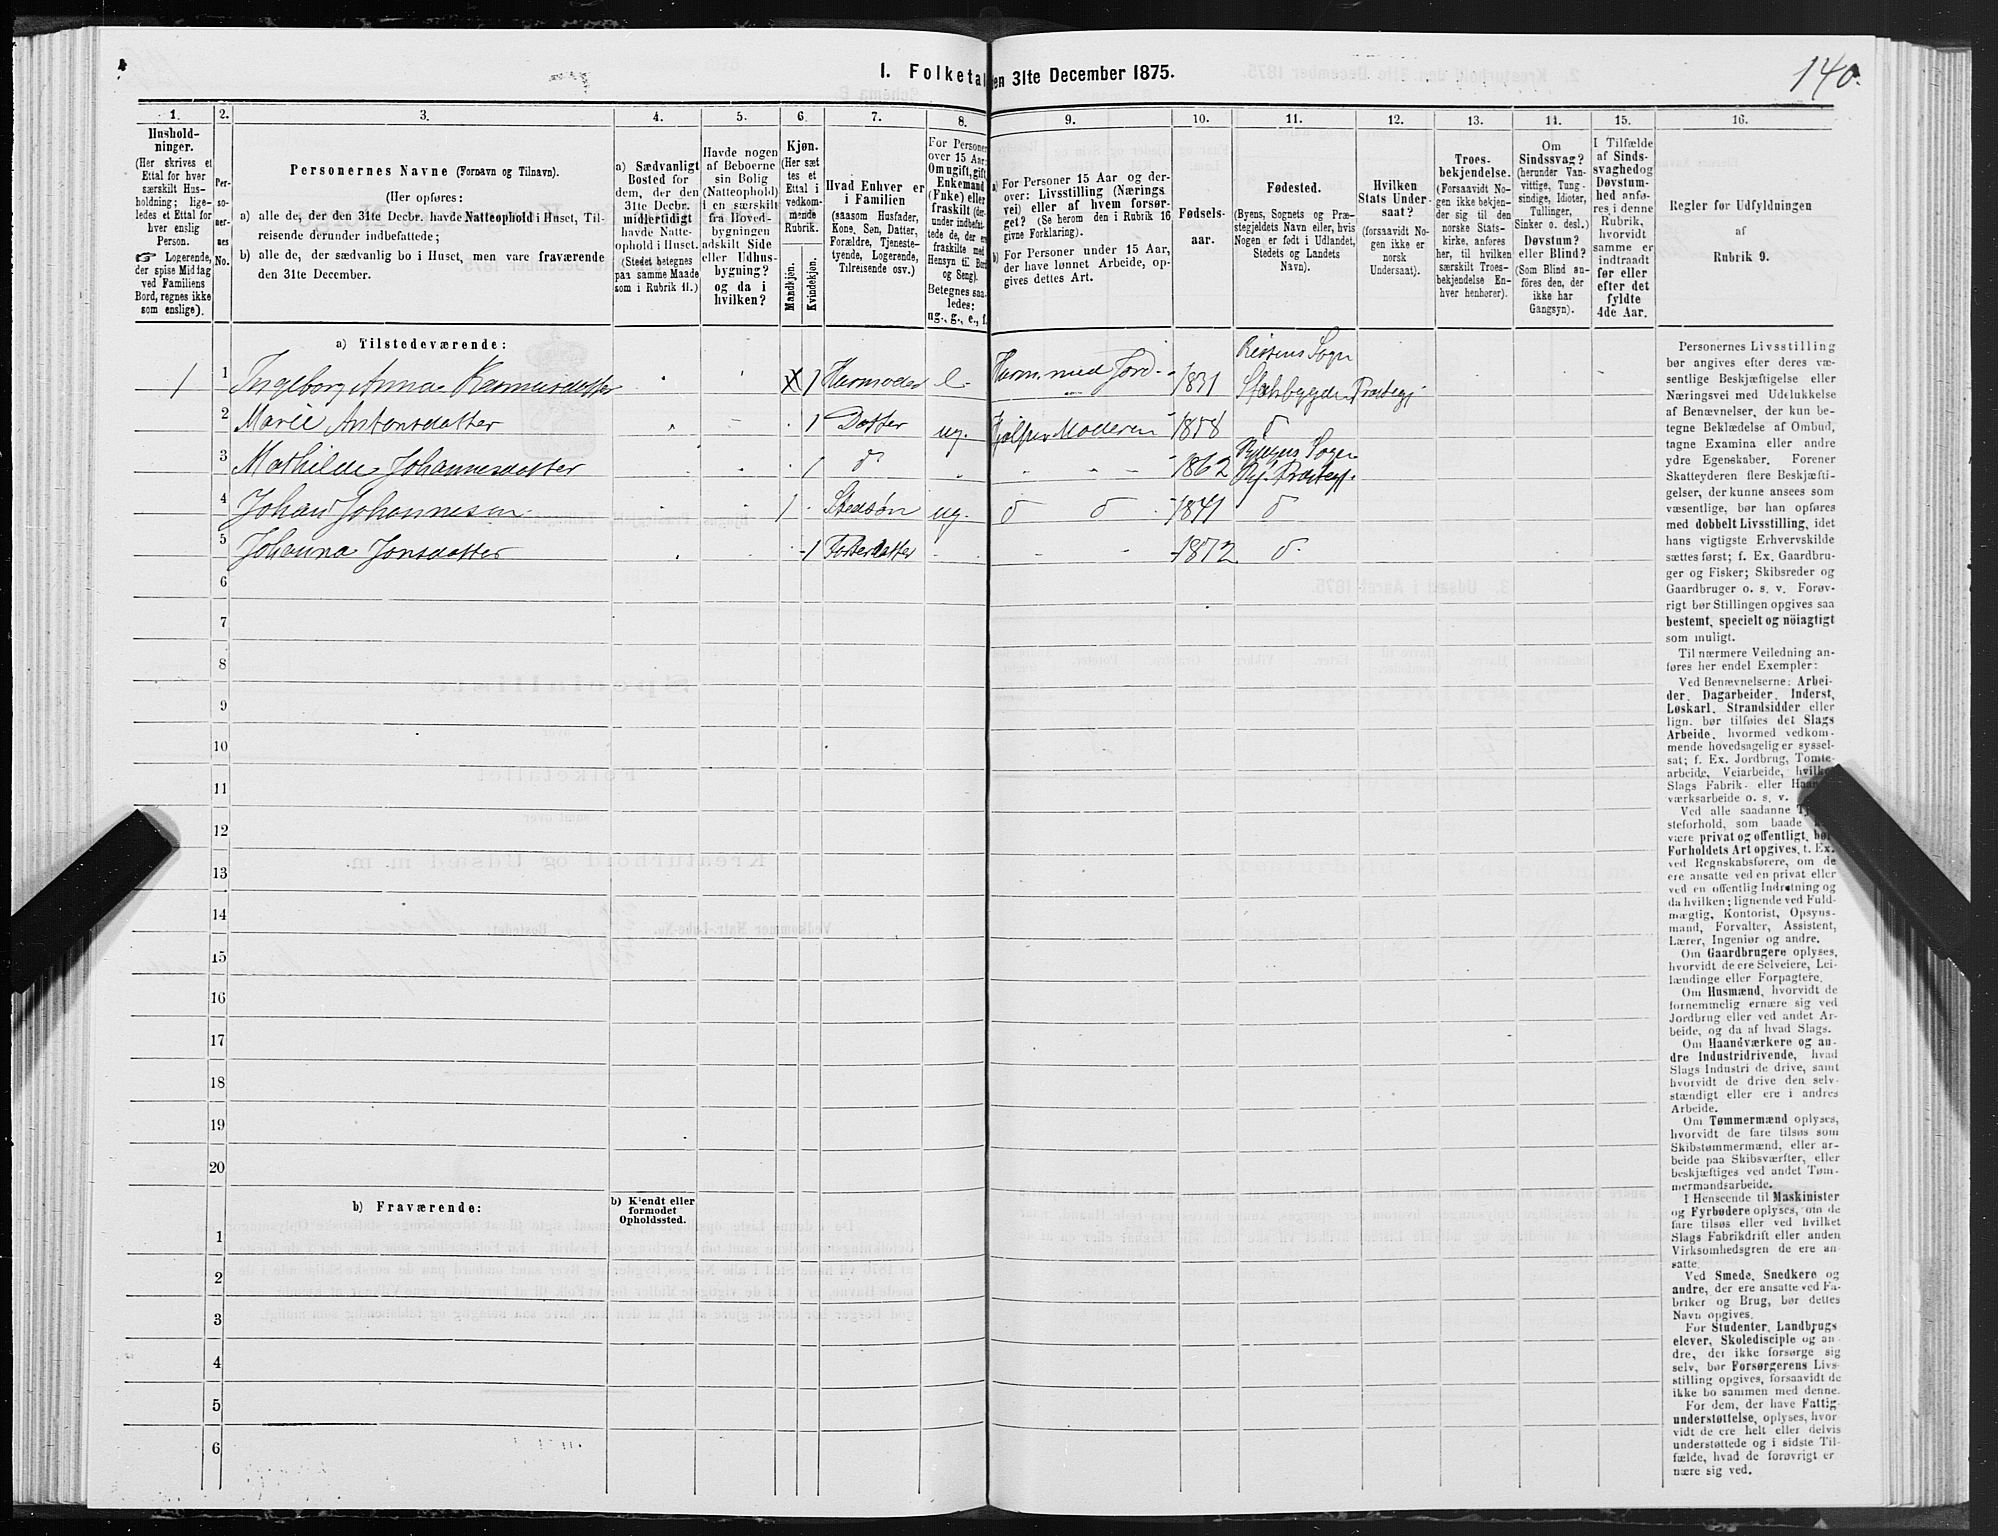 140.
1. Folketal
den 31te December 1875.
1.
2.
3.
4.
5.
6.
7.
8.
9.
10.
11.
12.
13.
14.
15.
16.
Hushold-
ninger.
(Her skrives et
Ettal for hver
særskilt Hus-
holdning; lige-
ledes et Ettal for
hver enslig
Person.
☞ Logerende,
der spise Middag
ved Familiens
Bord, regnes ikke
som enslige).
Per-
so-
ner-
nes
No.
Personernes Navne (Fornavn og Tilnavn).
(Her opføres:
a) alle de, der den 31te Decbr. havde Natteophold i Huset, Til-
reisende derunder indbefattede;
b) alle de, der sædvanlig bo i Huset, men vare fraværende
den 31te December.
a) Sædvanligt
Bosted for
dem, der den
31te Decbr.
midlertidigt
havde Natte-
ophold i Huset.
(Stedet betegnes
paa samme Maade
som i Rubrik 11.)
Havde nogen
af Beboerne
sin Bolig
(Natteophold)
i en særskilt
fra Hoved-
bygningen
adskilt Side
eller Udhus-
bygning?
og da i
hvilken?
Kjøn.
(Her sæt-
tes et
Ettal i
vedkom-
mende
Rubrik.
Mandkjøn.
Kvindekjøn.
Hvad Enhver er
i Familien
(saasom Husfader,
Kone, Søn, Datter,
Forældre, Tjeneste-
tyende, Logerende,
Tilreisende osv.)
For Personer
over 15 Aar:
Om ugift, gift,
Enkemand
(Enke) eller
fraskilt (der-
under indbefat-
tede de, der ere
fraskilte med
Hensyn til Bord
og Seng).
Betegnes saa-
ledes:
ug., g., e., f.
a) For Personer 15 Aar og der-
over: Livsstilling (Nærings-
vei) eller af hvem forsør-
get? (Se herom den i Rubrik 16
givne Forklaring).
b) For Personer under 15 Aar,
der have lønnet Arbeide, op-
gives dettes Art.
Fødsels-
aar.
Fødested.
(Byens, Sognets og Præ-
stegjeldets Navn eller, hvis
Nogen er født i Udlandet,
Stedets og Landets
Navn).
Hvilken
Stats Under-
saat?
(forsaavidt No-
gen ikke er
norsk
Undersaat).
Troes-
bekjendelse.
(Forsaavidt No-
gen ikke bekjen-
der sig til den
norske Stats-
kirke, anføres
her, til hvilken
særskilt Troes-
bekjendelse En-
hver henhører).
Om
Sindssvag?
(herunder Van-
vittige, Tung-
sindige, Idioter,
Tullinger,
Sinker o. desl.)
Døvstum?
eller Blind?
(Som Blind an-
føres den, der
ikke har
Gangsyn).
I Tilfælde
af Sinds-
svaghed og
Døvstum-
hed anfø-
res i denne
Rubrik,
hvorvidt
samme er
indtraadt
før eller
efter det
fyldte
4de Aar.
Regler for Udfyldningen
af
Rubrik 9.
a) Tilstedeværende:
1 1 Ingeborg Anna Rasmusdatter 1 Husmoder e. Husm. med Jord 1831 Sogn
2 Marie Antonsdatter 1 Datter ug. Hjælper Moderen 1858 d
3 Mathilde Johannesdatter 1 d 1862 Sogn
4 Johan Johannesen 1 Stedsøn ug. d d 1841 d
5 Johanna Jonsdatter 1 Fosterdatter 1872 d
6
7
8
9
10
11
12
13
14
15
16
17
18
19
20
b) Fraværende:
b) Kjendt eller
formodet
Opholdssted.
1
2
3
4
5
6
Personernes Livsstilling
bør angives efter deres væ-
sentlige Beskjæftigelse eller
Næringsvei med Udelukkelse
af Benævnelser, der kun be-
tegne Beklædelse af Ombud,
tagne Examina eller andre
ydre Egenskaber. Forener
Skatteyderen flere Beskjæfti-
gelser, der kunne ansees som
væsentlige, bør han opføres
med dobbelt Livsstilling, idet
hans vigtigste Erhvervskilde
sættes først; f. Ex. Gaardbru-
ger og Fisker; Skibsreder og
Gaardbruger o. s. v. Forøv-
rigt bør Stillingen opgives saa
bestemt, specielt og nøiagtigt
som muligt.
Til nærmere Veiledning an-
føres her endel Exempler:
Ved Benævnelserne: Arbei-
der, Dagarbeider, Inderst,
Løskarl, Strandsidder eller
lign. bør tilføies det Slags
Arbeide, hvormed vedkom-
mende hovedsagelig er syssel-
sat; f. Ex. Jordbrug, Tomte-
arbeide, Veiarbeide, hvilket
Slags Fabrik- eller Haand-
værksarbeide o. s. v.
Ved alle saadanne Tjene-
steforhold, som baade kan
være privat og offentligt, bør
Forholdets Art opgives, f. Ex.
ved Regnskabsførere, om de
ere ansatte ved en privat eller
ved en offentlig Indretning og
da hvilken; lignende ved Fuld-
mægtig, Kontorist, Opsyns-
mand, Forvalter, Assistent,
Lærer, Ingeniør og andre.
Om Gaardbrugere oplyses,
hvorvidt de ere Selveiere, Lei-
lændinge eller Forpagtere.
Om Husmænd, hvorvidt de
fornemmelig ernære sig ved
Jordbrug eller ved andet Ar-
beide, og da af hvad Slags.
Om Haandværkere og an-
dre Industridrivende, hvad
Slags Industri de drive, samt
hvorvidt de drive den selv-
stændigt eller ere i andres
Arbeide.
Om Tømmermænd oplyses,
hvorvidt de fare tilsøs som
Skibstømmermænd, eller ar-
beide paa Skibsværfter, eller
beskjæftiges ved andet Tøm-
mermandsarbeide.
I Henseende til Maskinister
og Fyrbødere oplyses, om de
fare tilsøs eller ved hvilket
Slags Fabrikdrift eller anden
Virksomhedsgren de ere an-
satte.
Ved Smede, Snedkere og
andre, der ere ansatte ved Fa-
briker og Brug, bør dettes
Navn opgives.
For Studenter, Landbrugs-
elever, Skoledisciple og an-
dre, der ikke forsørge sig
selv, bør Forsørgerens Livs-
stilling opgives, forsaavidt de
ikke bo sammen med denne.
For dem, der have Fattig-
understøttelse, oplyses, hvor-
vidt de ere helt eller delvis
understøttede og i sidste Til-
fælde, hvad de forøvrigt er-
nære sig ved.